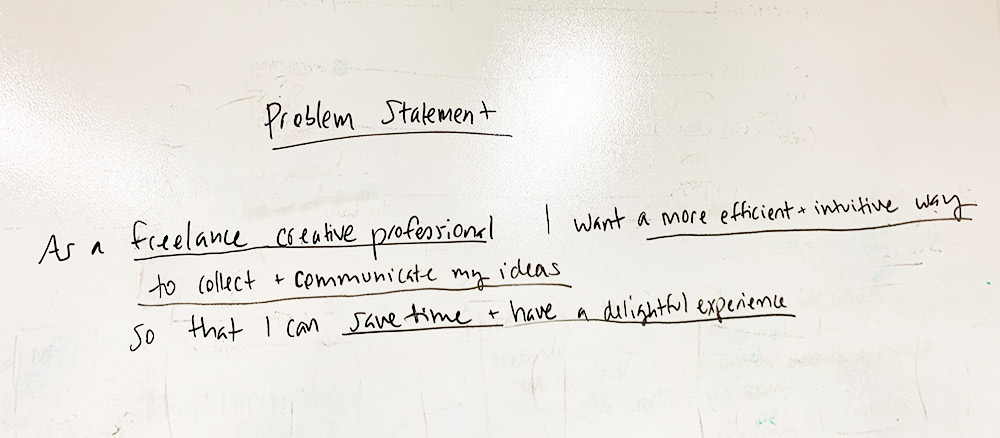 Problem Statement
As a freelance creative professional I want a more efficient + intuitive way
to collect + communicate my ideas
so that I can save time + have a delightful experience